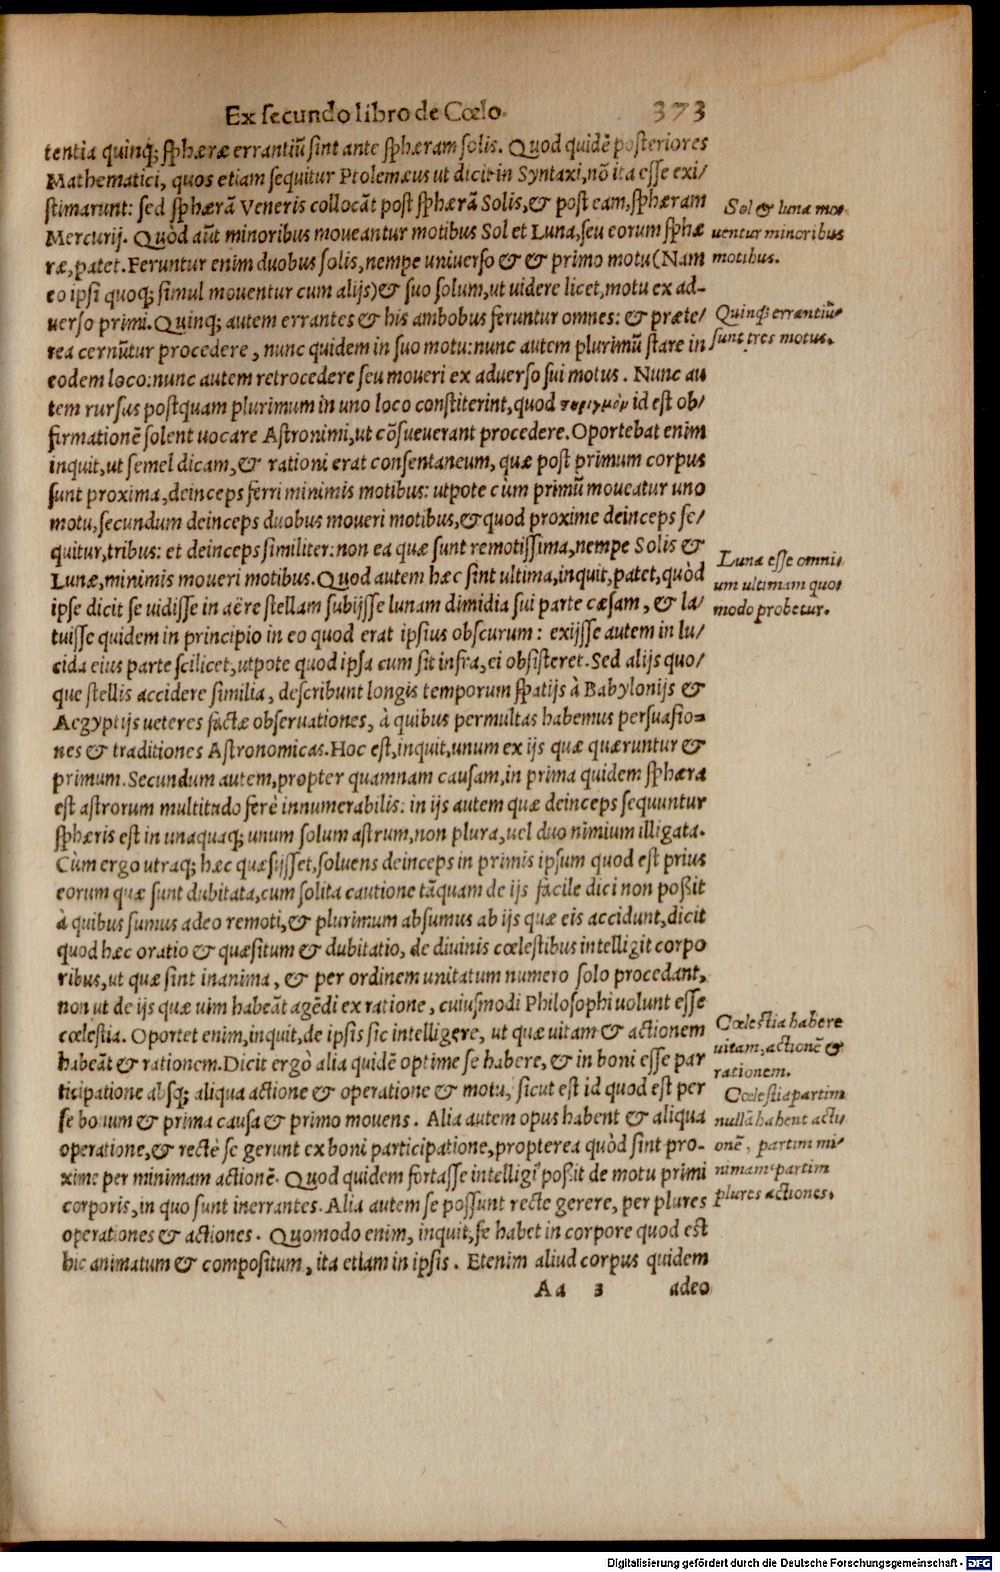 Ex secundo libro de Cœlo. 373
tentia quinq; sphæræ errantiũ sint ante sphæram solis. Quod quidẽ posteriores
Mathematici, quos etiam sequitur Ptolemæus ut dicit in Syntaxi, nõ ita esse exi/
stimarunt: sed sphærã Veneris collocãt post sphærã Solis, & post eam, sphæram
Mercurij. Quòd aũt minoribus moueantur motibus Sol et Luna, seu eorum sphæ
ræ, patet. Feruntur enim duobus solis, nempe uniuerso & & primo motu (Nam
eo ipsi quoq; simul mouentur cum alijs) & suo solum, ut uidere licet, motu ex ad-
uerso primi. Quinq; autem errantes & his ambobus feruntur omnes: & præte/
rea cernũtur procedere, nunc quidem in suo motu: nunc autem plurimũ stare in
eodem loco: nunc autem retrocedere seu moueri ex aduerso sui motus. Nunc au
tem rursus postquam plurimum in uno loco constiterint, quod id est ob/
firmationẽ solent uocare Astronimi, ut cõsueuerant procedere. Oportebat enim
inquit, ut semel dicam, & rationi erat consentaneum, quæ post primum corpus
sunt proxima, deinceps ferri minimis motibus: utpote cùm primũ moueatur uno
motu, secundum deinceps duobus moueri motibus, & quod proxime deinceps se/
quitur, tribus: et deinceps similiter: non ea quæ sunt remotissima, nempe Solis &
Lunæ, minimis moueri motibus. Quod autem hæc sint ultima, inquit, patet, quòd
ipse dicit se uidisse in aëre stellam subijsse lunam dimidia sui parte cæsam, & la/
tuisse quidem in principio in eo quod erat ipsius obscurum: exijsse autem in lu/
cida eius parte scilicet, utpote quod ipsa cum sit infra, ei obsisteret. Sed alijs quo/
que stellis accidere similia, describunt longis temporum spatijs à Babylonijs &
Aegyptijs ueteres factæ obseruationes, à quibus permultas habemus persuasio=
nes & traditiones Astronomicas. Hoc est, inquit, unum ex ijs quæ quæruntur &
primum. Secundum autem, propter quamnam causam, in prima quidem sphæra
est astrorum multitudo ferè innumerabilis: in ijs autem quæ deinceps sequuntur
sphæris est in unaquaq; unum solum astrum, non plura, uel duo nimium illigata.
Cùm ergo utraq; hæc quæsijsset, soluens deinceps in primis ipsum quod est prius
eorum quæ sunt dubitata, cum solita cautione tãquam de ijs facile dici non poßit
à quibus sumus adeo remoti, & plurimum absumus ab ijs quæ eis accidunt, dicit
quod hæc oratio & quæsitum & dubitatio, de diuinis cœlestibus intelligit corpo
ribus, ut quæ sint inanima, & per ordinem unitatum numero solo procedant,
non ut de ijs quæ uim habeãt agẽdi ex ratione, cuiusmodi Philosophi uolunt esse
cœlestia. Oportet enim, inquit, de ipsis sic intelligere, ut quæ uitam & actionem
habeãt & rationem. Dicit ergò alia quidẽ optime se habere, & in boni esse par
ticipatione absq; aliqua actione & operatione & motu, sicut est id quod est per
se bonum & prima causa & primo mouens. Alia autem opus habent & aliqua
operatione, & rectè se gerunt ex boni participatione, propterea quòd sint pro-
xime per minimam actionẽ. Quod quidem fortasse intelligi poßit de motu primi
corporis, in quo sunt inerrantes. Alia autem se possunt recte gerere, per plures
operationes & actiones. Quomodo enim, inquit, se habet in corpore quod est
hic animatum & compositum, ita etiam in ipsis. Etenim aliud corpus quidem
Aa 3 adeo
Sol & luna mo-
uentur minoribus
motibus.
Quinq; errantiũ
sunt tres motus.
Luna esse omni-
um ultimam quo-
modo probetur.
Cœlestia habere
uitam, actionẽ &
rationem.
Cœlestia partim
nullã habent acti
onẽ, partim mi-
nimam: partim
plures actiones.
Digitalisierung gefördert durch die Deutsche Forschungsgemeinschaft - DFG